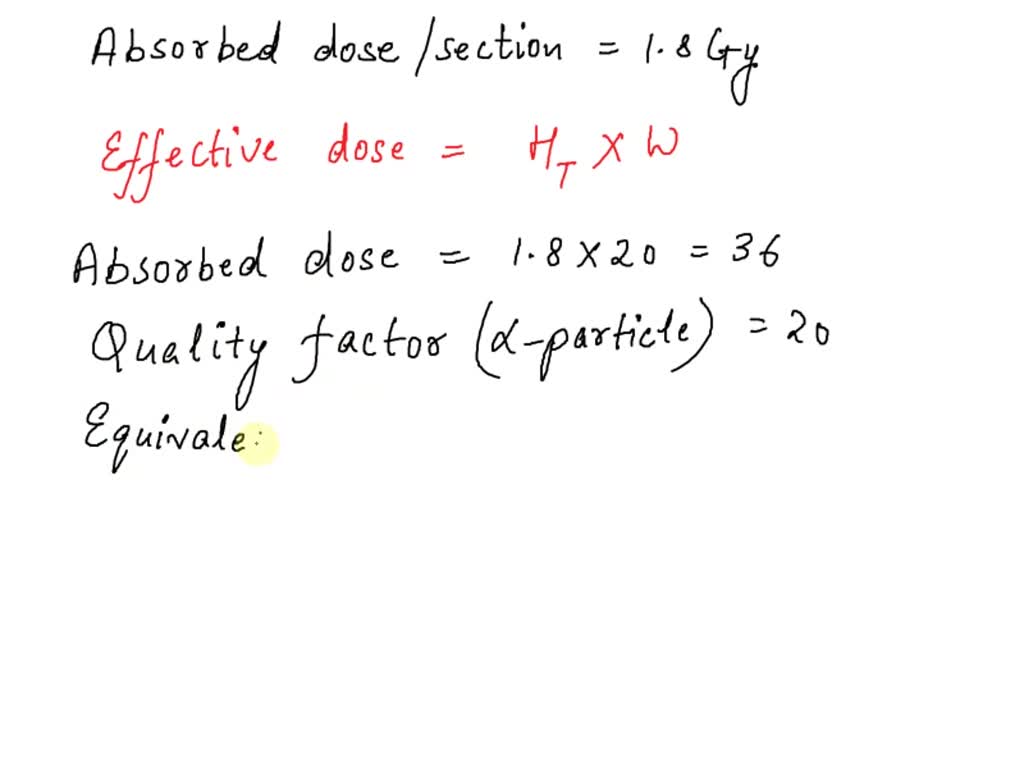 Absorbed dose/section = 1.8 Gy
Effective dose = H_T × W
Absorbed dose = 1.8 × 20 = 36
Quality factor (α-particle) = 20
Equivale